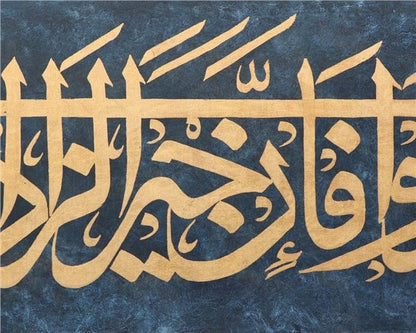 فَإِنَّ خَيْرَ الزَّا